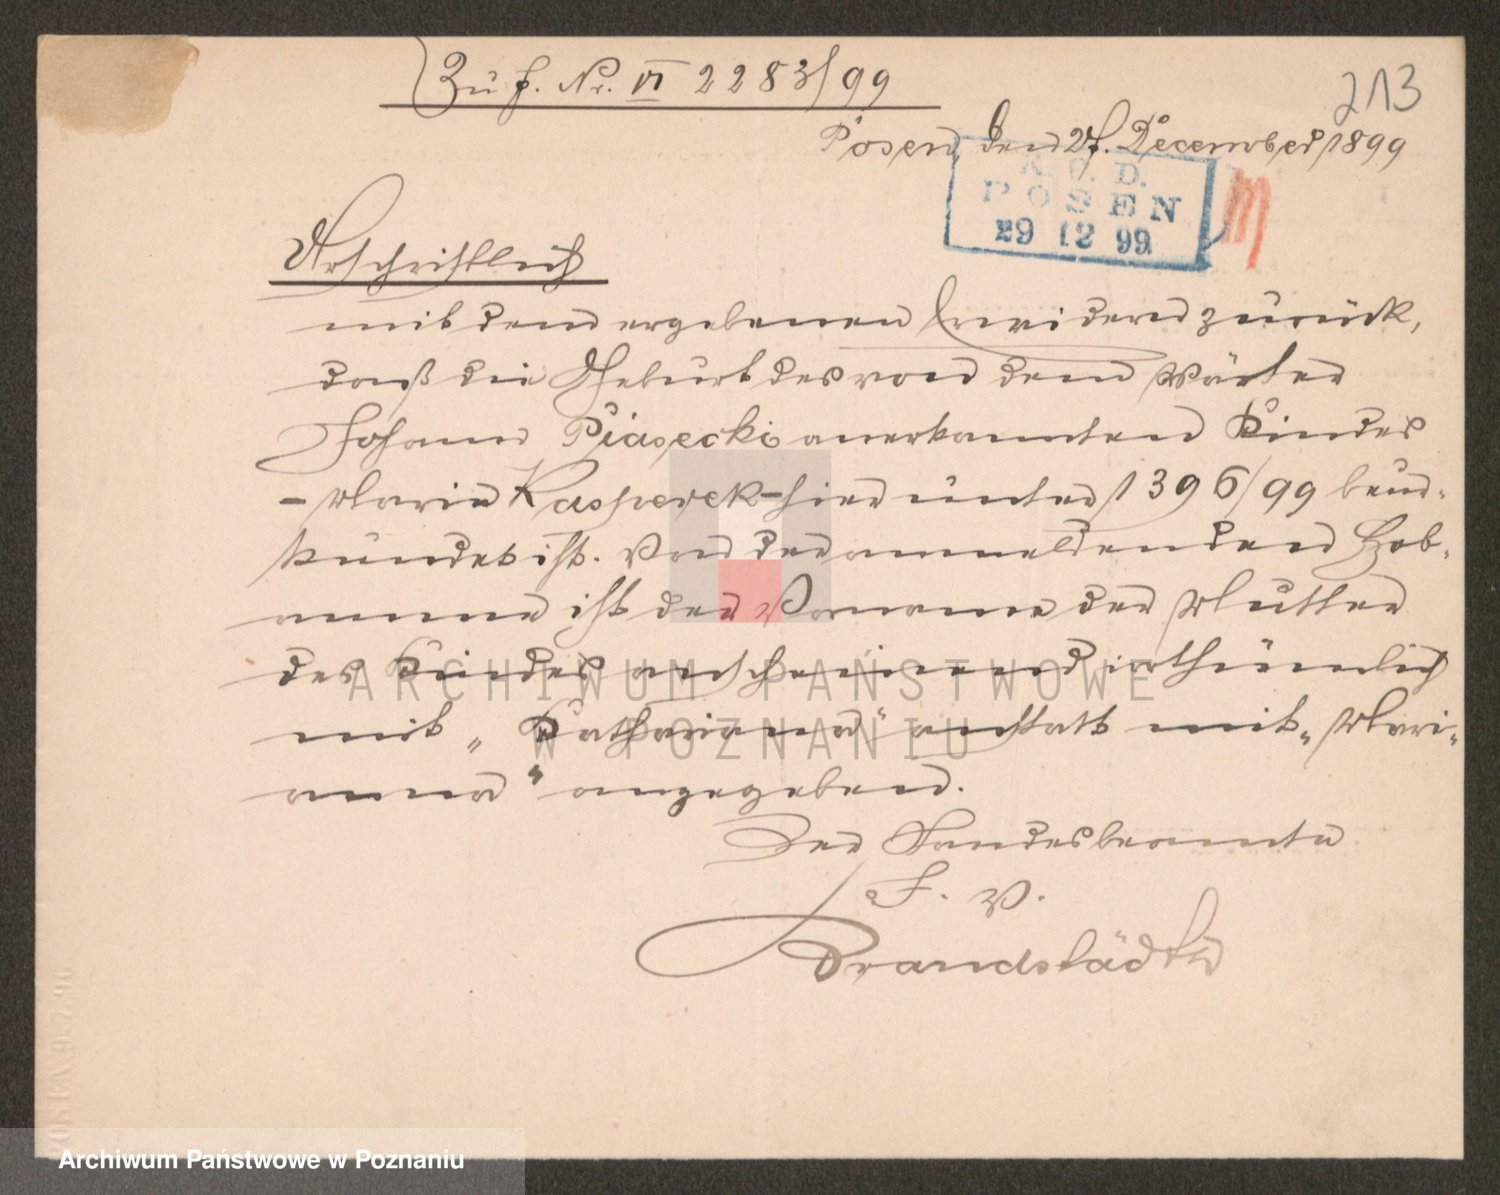 Zu J. Nr. VI 2283/99
213
Posen, den 27. December 1899
K. P. D.
POSEN
29 12 99
Urschriftlich
mit dem ergebenen Erwidern zurück,
daß die Geburt des von dem Wärter
Johann Piasecki anerkannten Kindes
- Marie Kasperek - hier unter 1396/99 beur-
kundet ist. Von der anmeldenden Heb-
amme ist der Vorname der Mutter
des Kindes anscheinend irrthümlich
mit „Katharina" anstatt mit „Mari-
anna" angegeben.
Der Standesbeamte
I. V.
Brandstädter
ARCHIWUM PAŃSTWOWE
W POZNANIU
Archiwum Państwowe w Poznaniu